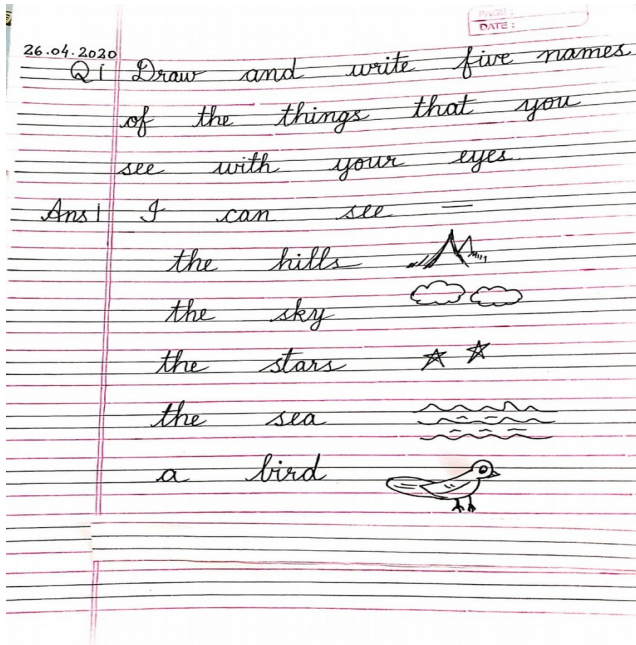 PAGE :
DATE :
26.04.2020
Q1 Draw and write five names
of the things that you
see with your eyes.
Ans1 I can see =
the hills
the sky
the stars
the sea
a bird